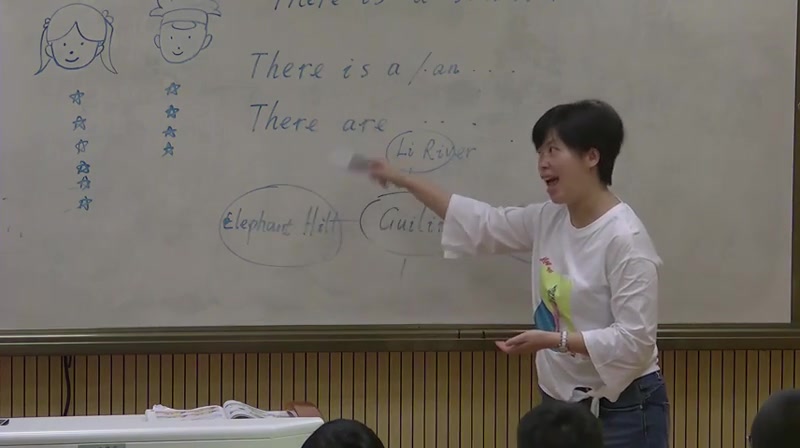 There is a
There is a / an ...
There are ...
Li River
Elephant Hill
Guilin